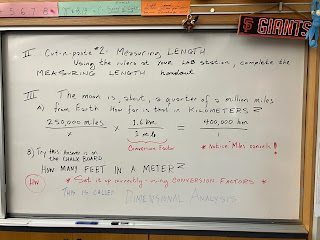 5 6 7 8
GIANTS
II Cut-n-paste #2 - Measuring LENGTH
Using the rulers at your LAB station, complete the
MEASURING LENGTH handout
III The moon is, about, a quarter of a million miles
A) from Earth. How far is that in KILOMETERS?
250,000 miles / 1 x 1.6 km / 1 mile = 400,000 km / 1
Conversion Factor
* Notice "Miles" cancels!
B) Try this Answer is on
the CHALK BOARD
HOW MANY FEET IN A METER?
HW * Set it up correctly - using CONVERSION FACTORS *
THIS IS CALLED DIMENSIONAL ANALYSIS